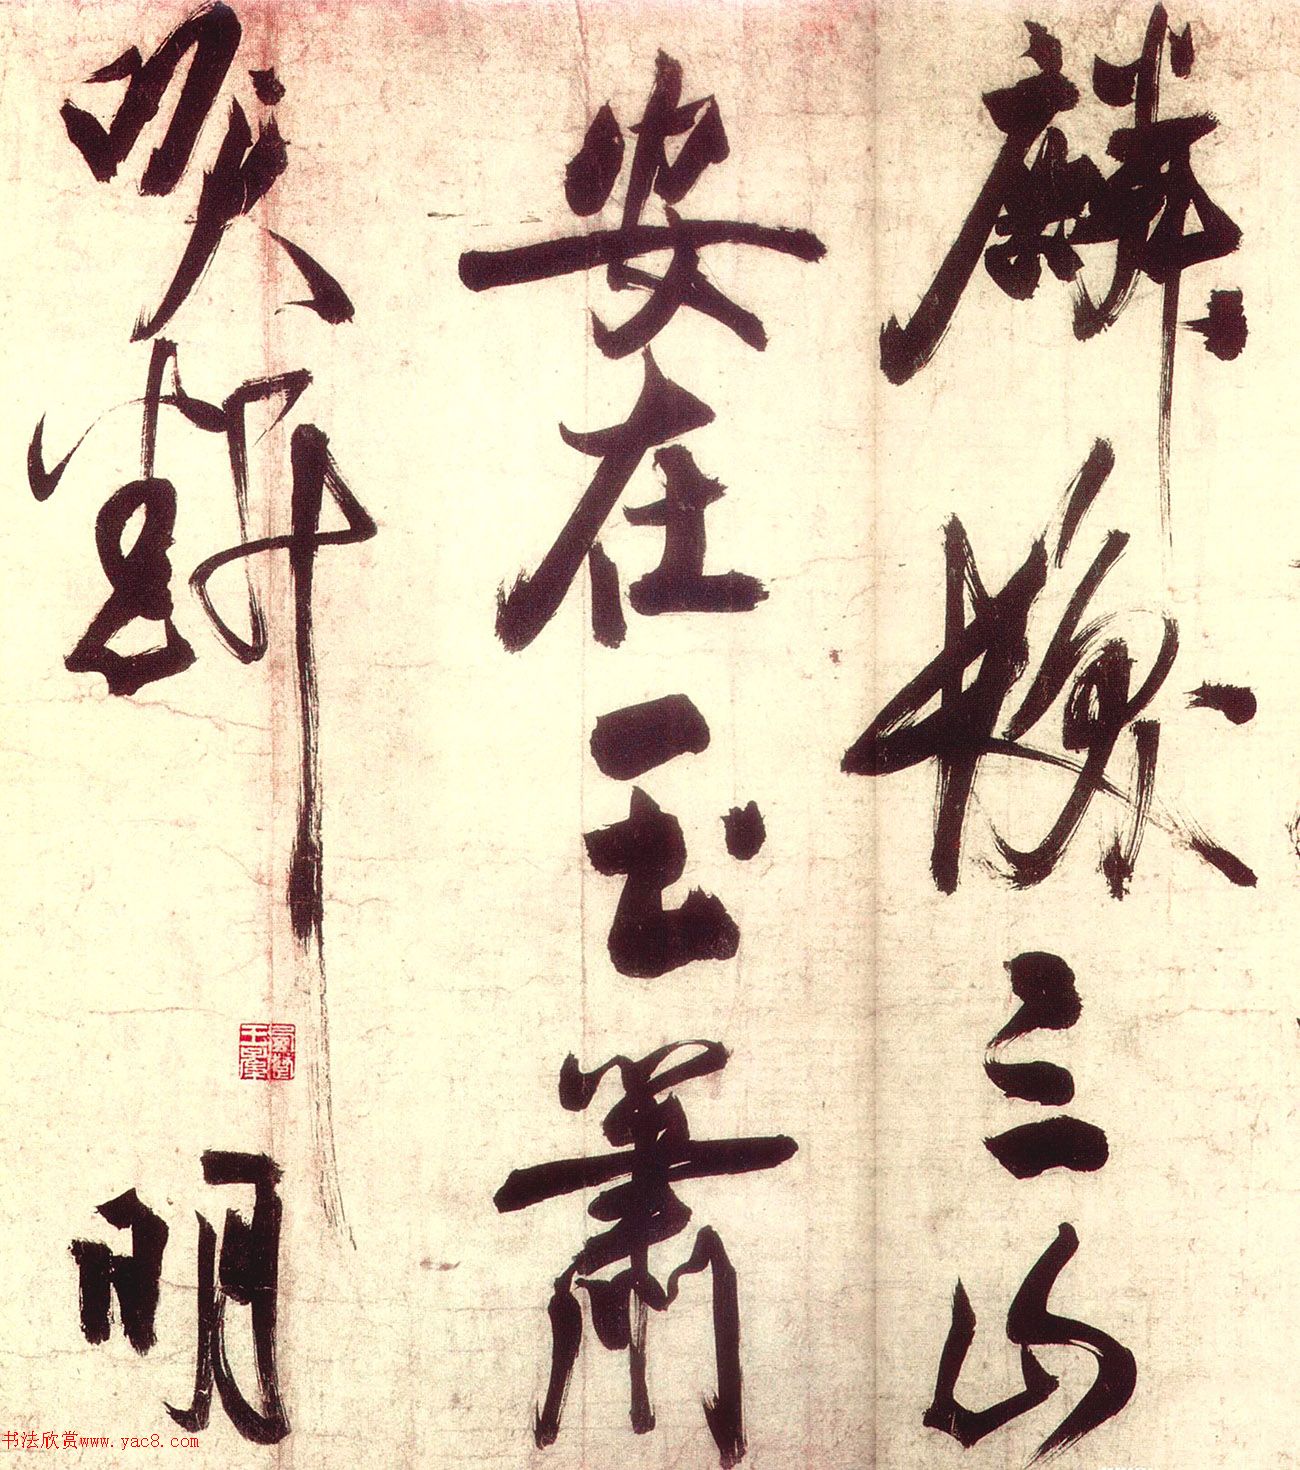 麟髮三山
安在玉簫
吹斷明
书法欣赏www.yac8.com